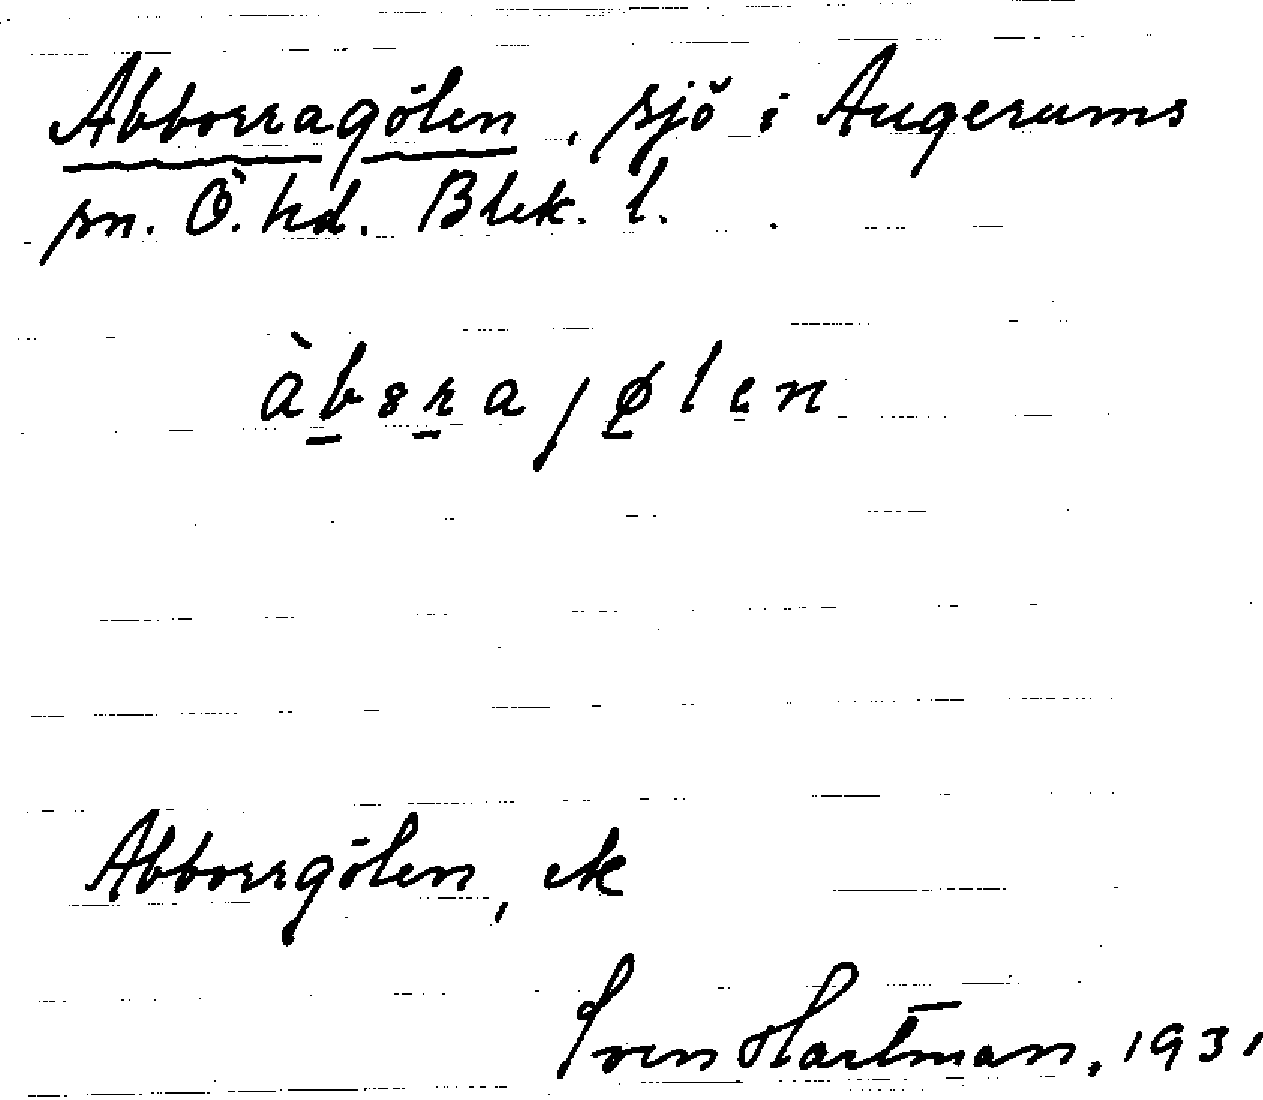 Abborragölen, sjö i Augerums
sn. Ö. hd. Blek. l.
àbsrajølen
Abborrgölen, ek
Sven Hartman, 1931